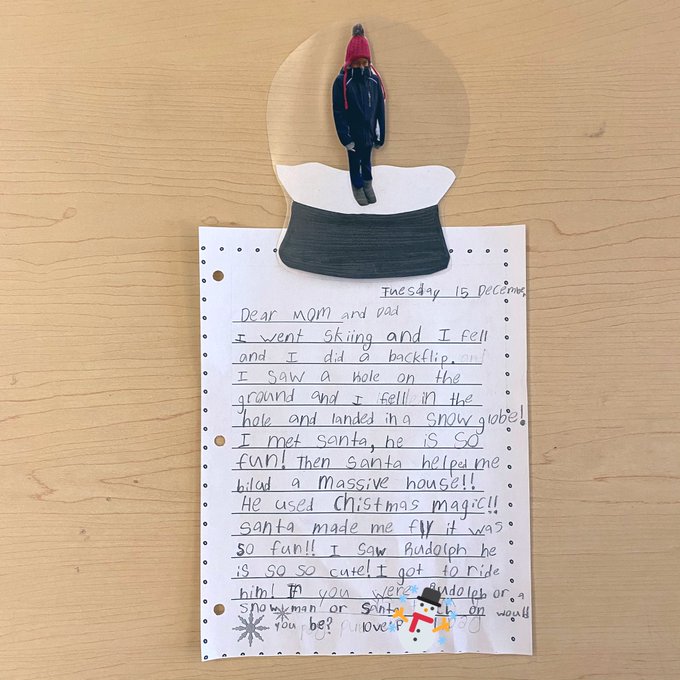 Tuesday 15 December
Dear Mom and Dad
I went Skiing and I fell
and I did a backflip. and
I saw a Hole on the
ground and I fell in the
hole and landed in a snow globe!
I met Santa, he is so
fun! Then Santa helped me
bilad a massive house!!
He used Christmas magic!!
Santa made me fly it was
so fun!! I saw Rudolph he
is so so cute! I got to ride
him! If you were Rudolph or a
snowman or Santa on would
you be? love